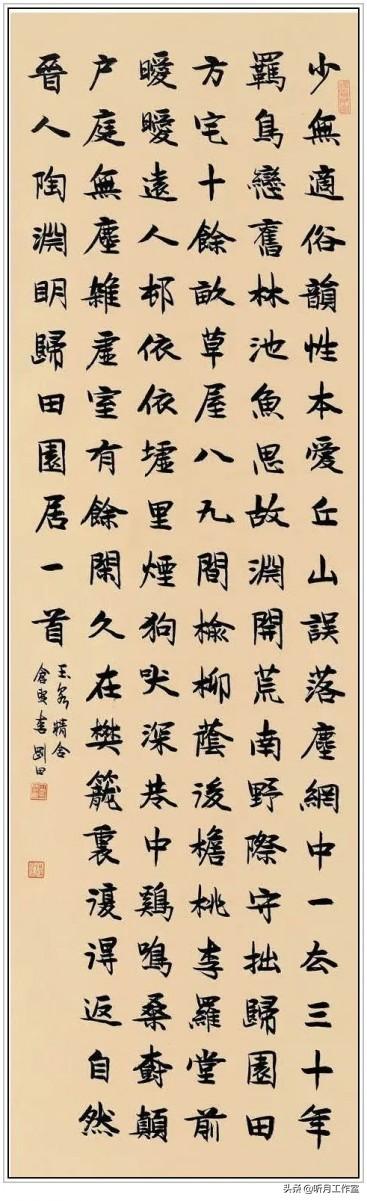 少無適俗韻性本愛丘山誤落塵網中一去三十年
羈鳥戀舊林池魚思故淵開荒南野際守拙歸園田
方宅十餘畝草屋八九間榆柳蔭後檐桃李羅堂前
曖曖遠人邨依依墟里煙狗吠深巷中鷄鳴桑樹顛
户庭無塵雜虛室有餘閑久在樊籠裏復得返自然
晉人陶淵明歸田園居一首
精舍
头条@听月工作室